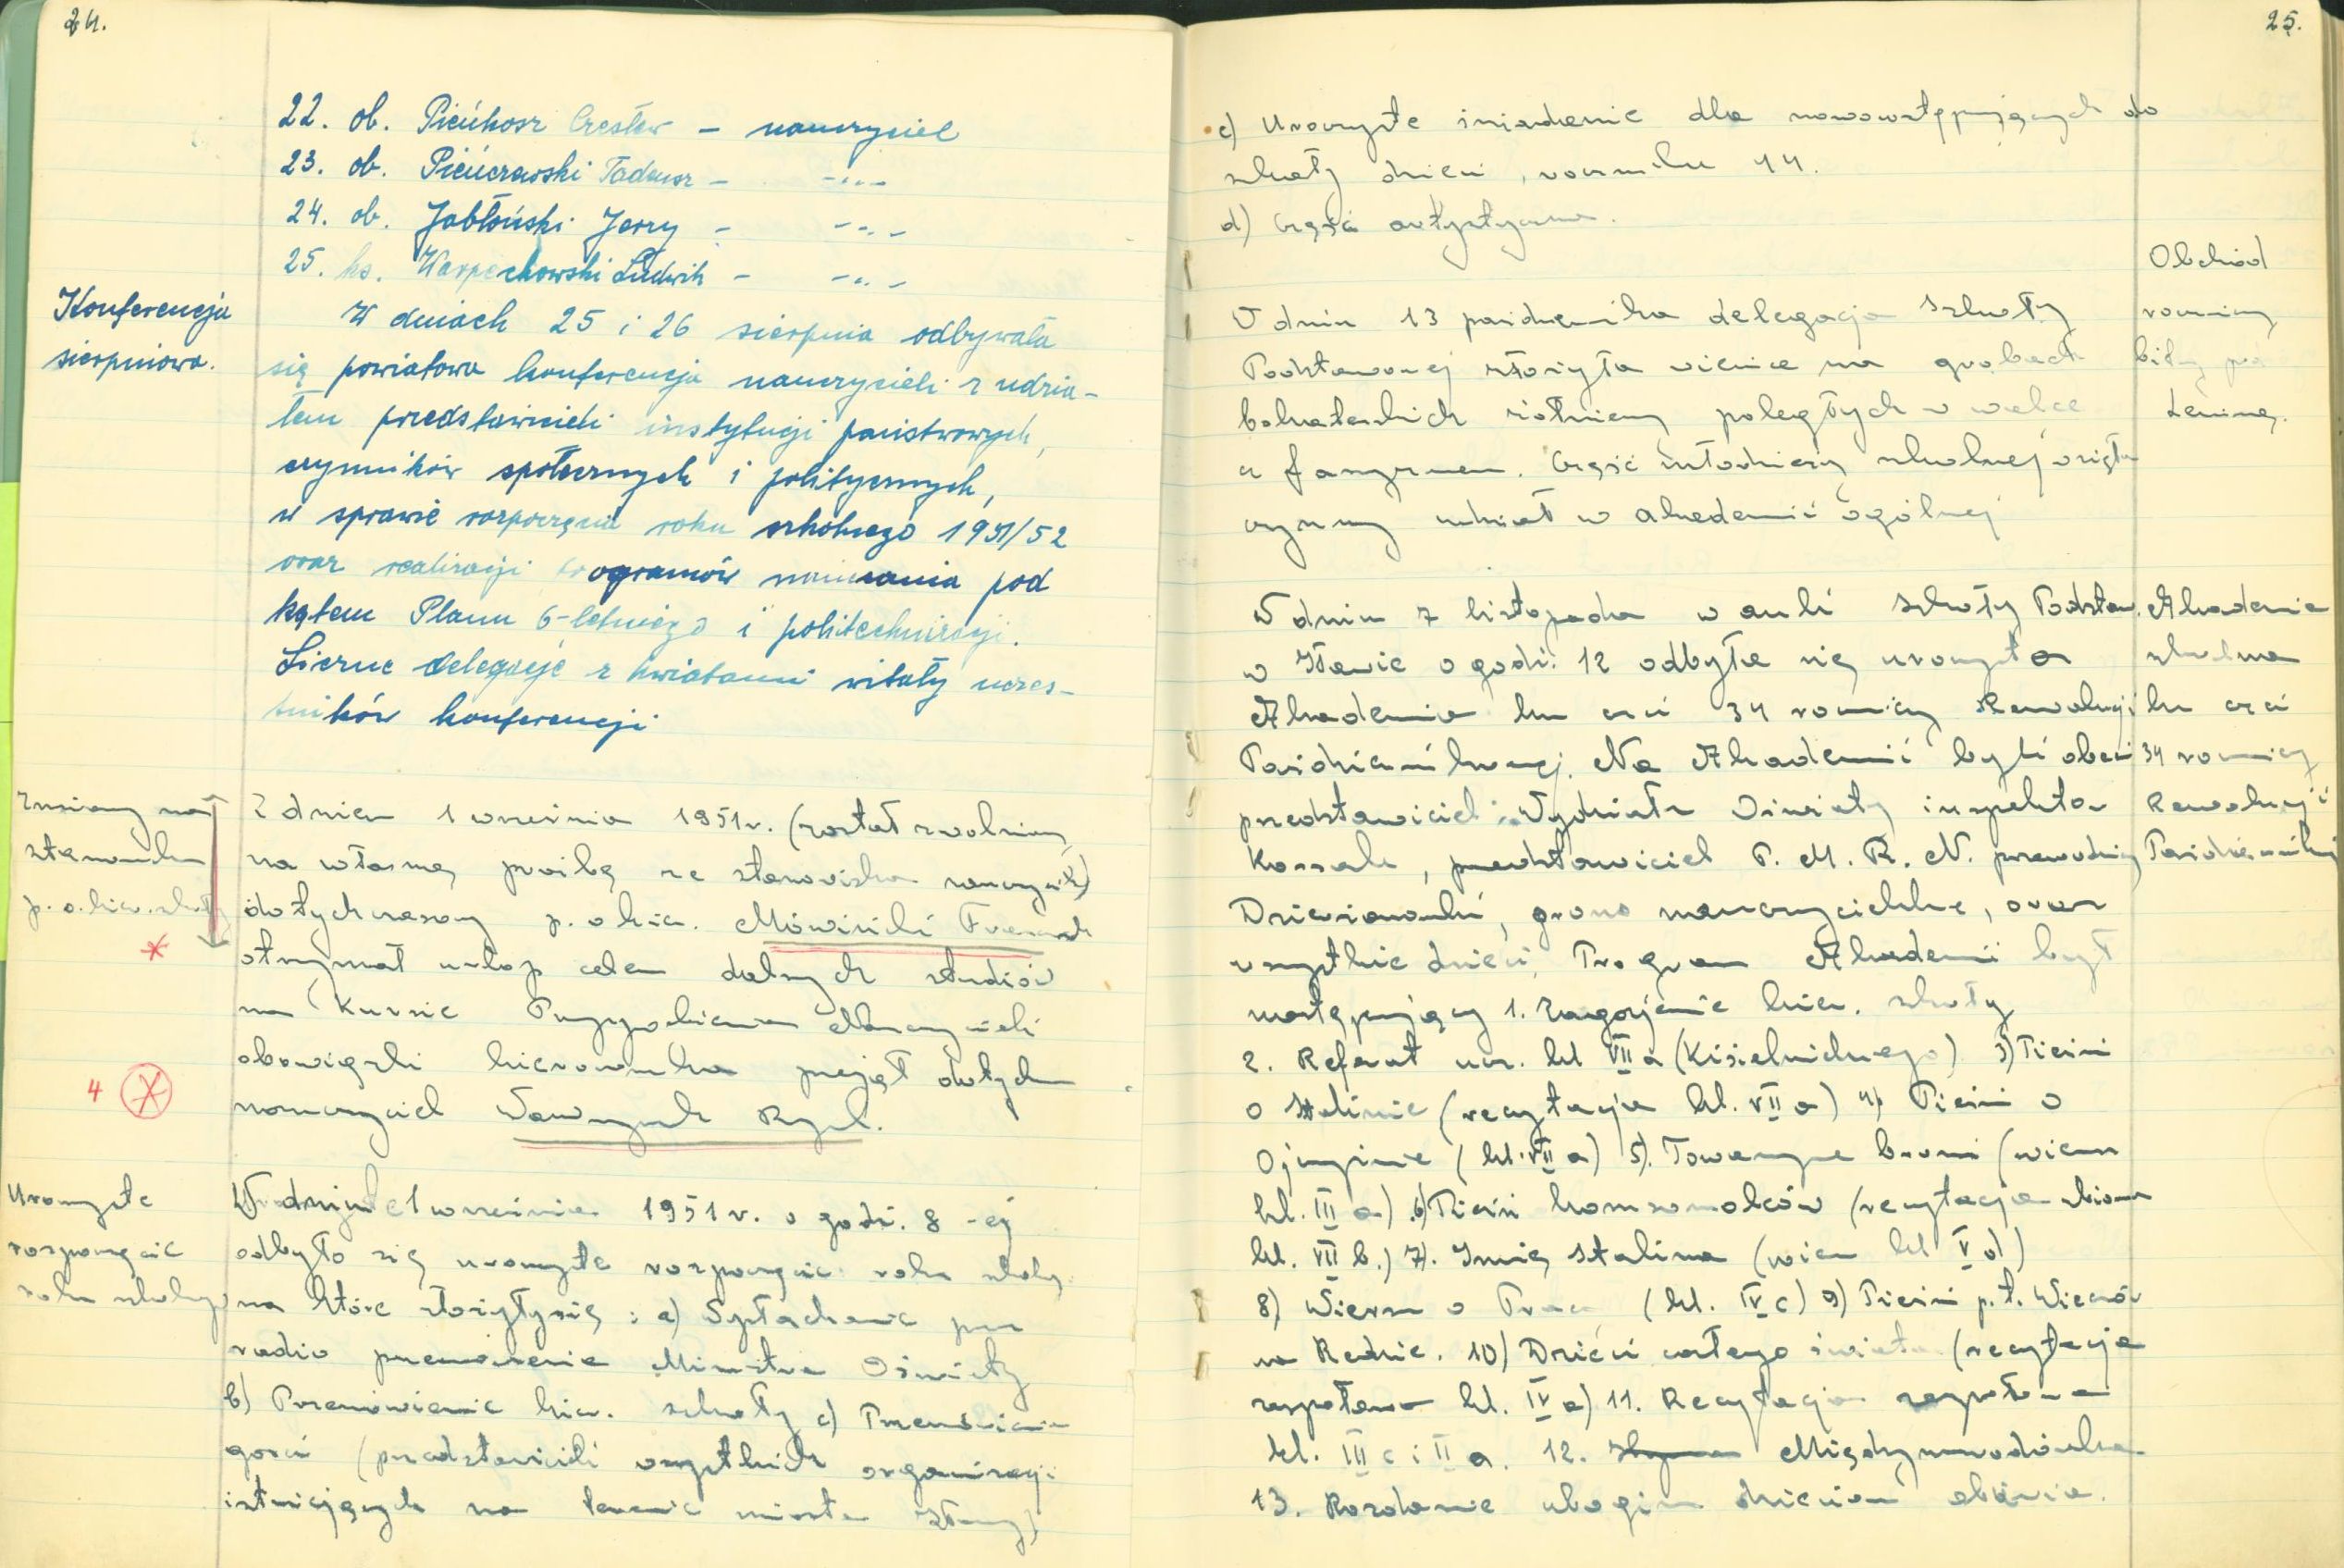 24.
22. ob. Pieńkosz Czesław – nauczyciel
23. ob. Pieńczewski Tadeusz – –..–
24. ob. Jabłoński Jerzy – –..–
25. ks. Warpechowski Ludwik – –..–
Konferencja
sierpniowa.
W dniach 25 i 26 sierpnia odbywała
się powiatowa konferencja nauczycieli z udzia-
łem przedstawicieli instytucji państwowych,
czynników społecznych i politycznych,
w sprawie rozpoczęcia roku szkolnego 1951/52
oraz realizacji programów nauczania pod
kątem Planu 6-letniego i politechnizacji.
Liczne delegacje z kwiatami witały uczes-
tników konferencji
Zmiany na
stanowisku
p.o. kier. szkoły
Z dniem 1 września 1951 r. (został zwolniony
na własną prośbę ze stanowiska nauczyciela)
dotychczasowy p. o kier. Mówiński Franciszek
otrzymał urlop celem dalszych studiów
na Kursie Przygotowawczym Nauczycieli
obowiązki kierownika przejął dotychcz
4
nauczyciel Wawrzyniak Ryszard.
Uroczyste
rozpoczęcie
roku szkolnego
W dniu 1 września 1951 r. o godz. 8-ej
odbyło się uroczyste rozpoczęcie roku szkoln.
na które złożyły się : a) Wysłuchanie przez
radio przemówienia Ministra Oświaty
b) Przemówienie kier. szkoły c) Przemówienie
gości (przedstawicieli wszystkich organizacji
istniejących na terenie miasta Iławy)
25.
c) Uroczyste śniadanie dla nowowstępujących do
szkoły dzieci, rocznika 44.
d) Część artystyczna.
Obchód
rocznicy
bitwy pod
Lenino.
W dniu 13 października delegacja Szkoły
Podstawowej złożyła wieńce na grobach
bohaterskich żołnierzy poległych w walce
z faszyzmem. Część młodzieży szkolnej wzięła
czynny udział w akademii ogólnej
Akademia
szkolna
ku czci
34 rocznicy
Rewolucji
Październikowej
W dniu 7 listopada w auli Szkoły Podstaw.
w Iławie o godz. 12 odbyła się uroczysta
Akademia ku czci 34 rocznicy Rewolucji
Październikowej. Na Akademii byli obecni
przedstawiciel Wydziału Oświaty inspektor
Kossak, przedstawiciel P. M. R. N. przewodniczący
Dzierżanowski, grono nauczycielskie, oraz
wszystkie dzieci. Program Akademii był
następujący 1. Zagajenie kier. szkoły
2. Referat ucz. kl VII a (Kisielnickiego) 3) Pieśń
o Stalinie (recytacja kl. VII a) 4) Pieśń o
Ojczyźnie (kl. VII a) 5). Towarzysze broni (wiersz
kl. III a) 6) Pieśń komsomolców (recytacja zbiorowa
kl. VII b.) 7). Imię Stalina (wiersz kl V d)
8) Wiersz o Pracy (kl. IV c) 9) Pieśń p.t. Wieczór
na Redzie. 10) Dzieci całego świata (recytacja
zespołowa kl. IV a) 11. Recytacja zespołowa
kl. III c i II a. 12. Międzynarodówka
13. Rozdanie ubogim dzieciom obuwia.